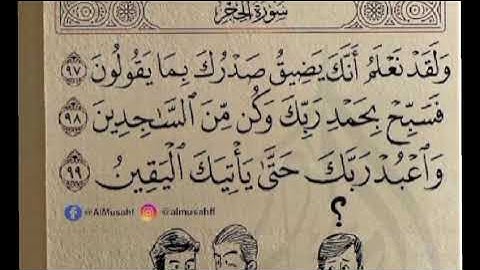 سُورَةُ الحِجْرِ
وَلَقَدْ نَعْلَمُ أَنَّكَ يَضِيقُ صَدْرُكَ بِمَا يَقُولُونَ ٩٧
فَسَبِّحْ بِحَمْدِ رَبِّكَ وَكُن مِّنَ السَّٰجِدِينَ ٩٨
وَاعْبُدْ رَبَّكَ حَتَّىٰ يَأْتِيَكَ الْيَقِينُ ٩٩
@AlMusahf @almusahff
؟